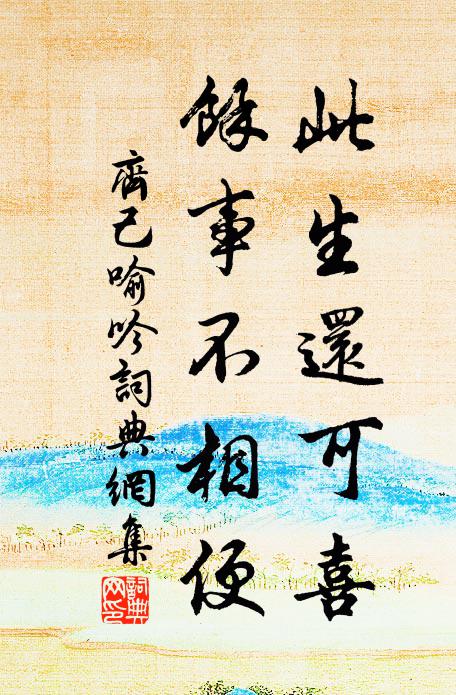 此生還可喜
餘事不相便
齊己喻吟詞典網集
詞典網印